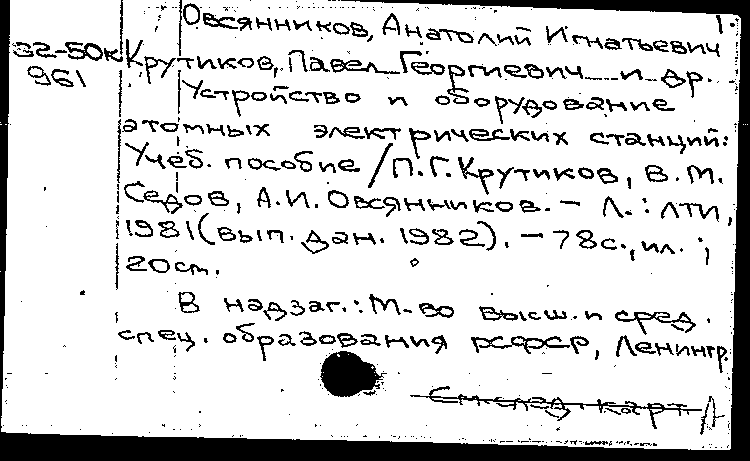 1.
Овсянников, Анатолий Игнатьевич
32-50к Крутиков, Павел Георгиевич и др.
961
Устройство и оборудование
атомных электрических станций:
Учеб. пособие / П.Г. Крутиков, В.М.
Седов, А.И. Овсянников. — Л.: ЛТИ,
1981 (вып. дан. 1982). — 78с., ил. ;
20 см.
В надзаг.: М-во высш. и сред.
спец. образования РСФСР, Ленингр.
См. след. карт. Д